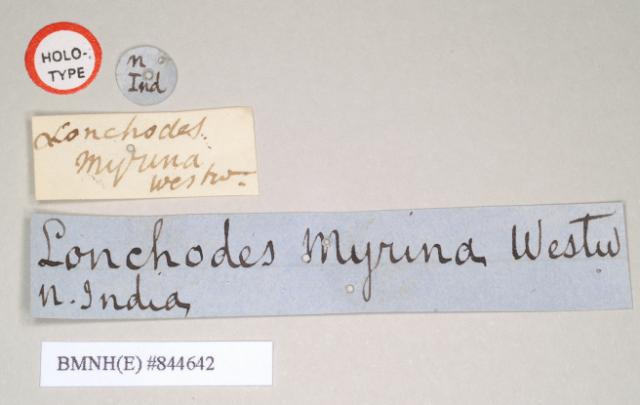 HOLO-
TYPE
N
Ind
Lonchodes
Myrina
Westw-
Lonchodes Myrina Westw
N. India
BMNH(E) #844642